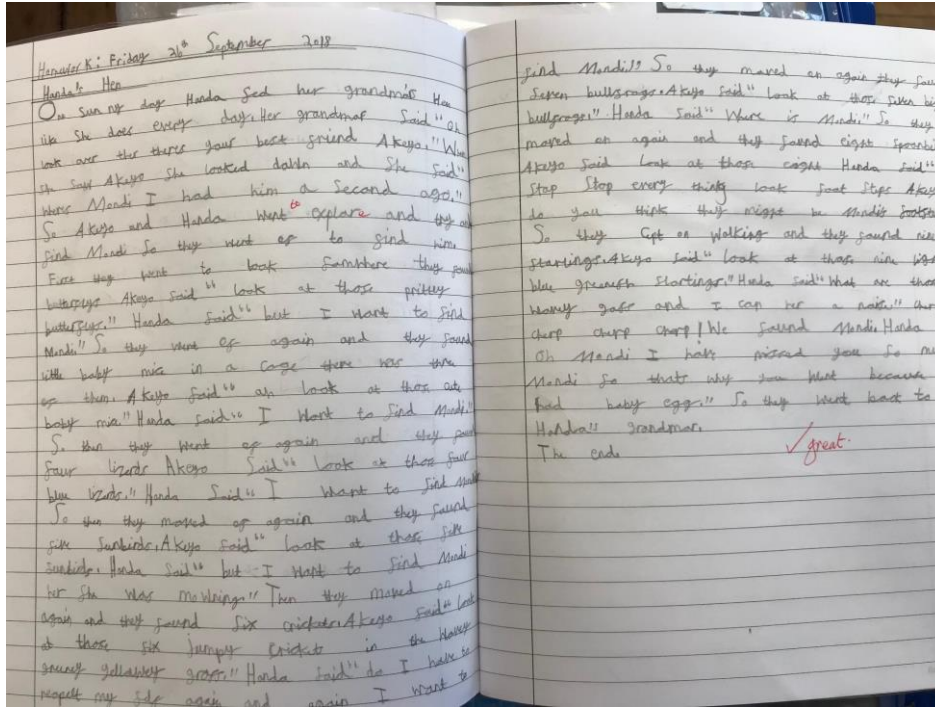 Homework: Friday 26th September 2018
Handa's Hen
One sunny day Handa fed her grandmas Hen
like She does every day. Her grandmar Said "oh
look over ther theres your best friend Akeyo."
She says Akeyo She looked dahln and She Said"
Wheres Mondi I had him a Second ago."
So Akeyo and Handa Went to explore and they
find Mondi So they went of to find him
First they went to look Somwhere they found
butterflys Akeyo Said" look at those prittey
butterflys." Handa Said" but I Want to find
Mondi." So they went of again and they found
little baby mice in a Cage there was three
of them. Akeyo Said" ah look at thos cute
baby mice." Handa Said" I Want to find Mondi."
So then they Went of again and they found
four lizards Akeyo Said" Look at thos four
blue lizards." Handa Said" I want to find Mondi
So then they moved of again and they found
five Sunbirds. Akeyo Said" look at those five
Sunbirds. Handa Said" but I Want to find Mondi
her She was mowning." Then they moved on
again and they found Six crickets. Akeyo Said" Look
at those six jumpy crickets in the Wavey
greeney yellowey grass." Handa Said" do I have to
reapett my self again and again I want to
find Mondi!" So they moved on again they
Seven bullfrogs. Akeyo Said" Look at those Seven
bullfrogs." Handa Said" Where is Mondi." So they
moved on again and they found eight
Akeyo Said Look at those eaight Handa Said"
Stop Stop every thing look foot Steps
do you think they might be Mondis
So they Cept on Walking and they found
starlings. Akeyo Said" look at those nine
blue greenish Starlings." Handa Said" What are
Wavey gass and I can her a noise."
cherp cherp cherp! We found Mondi Handa
Oh Mondi I have missed you So
Mondi So thats why you Went because
had baby eggs." So they went back to
Handa's grandmar.
The end.
✓great.